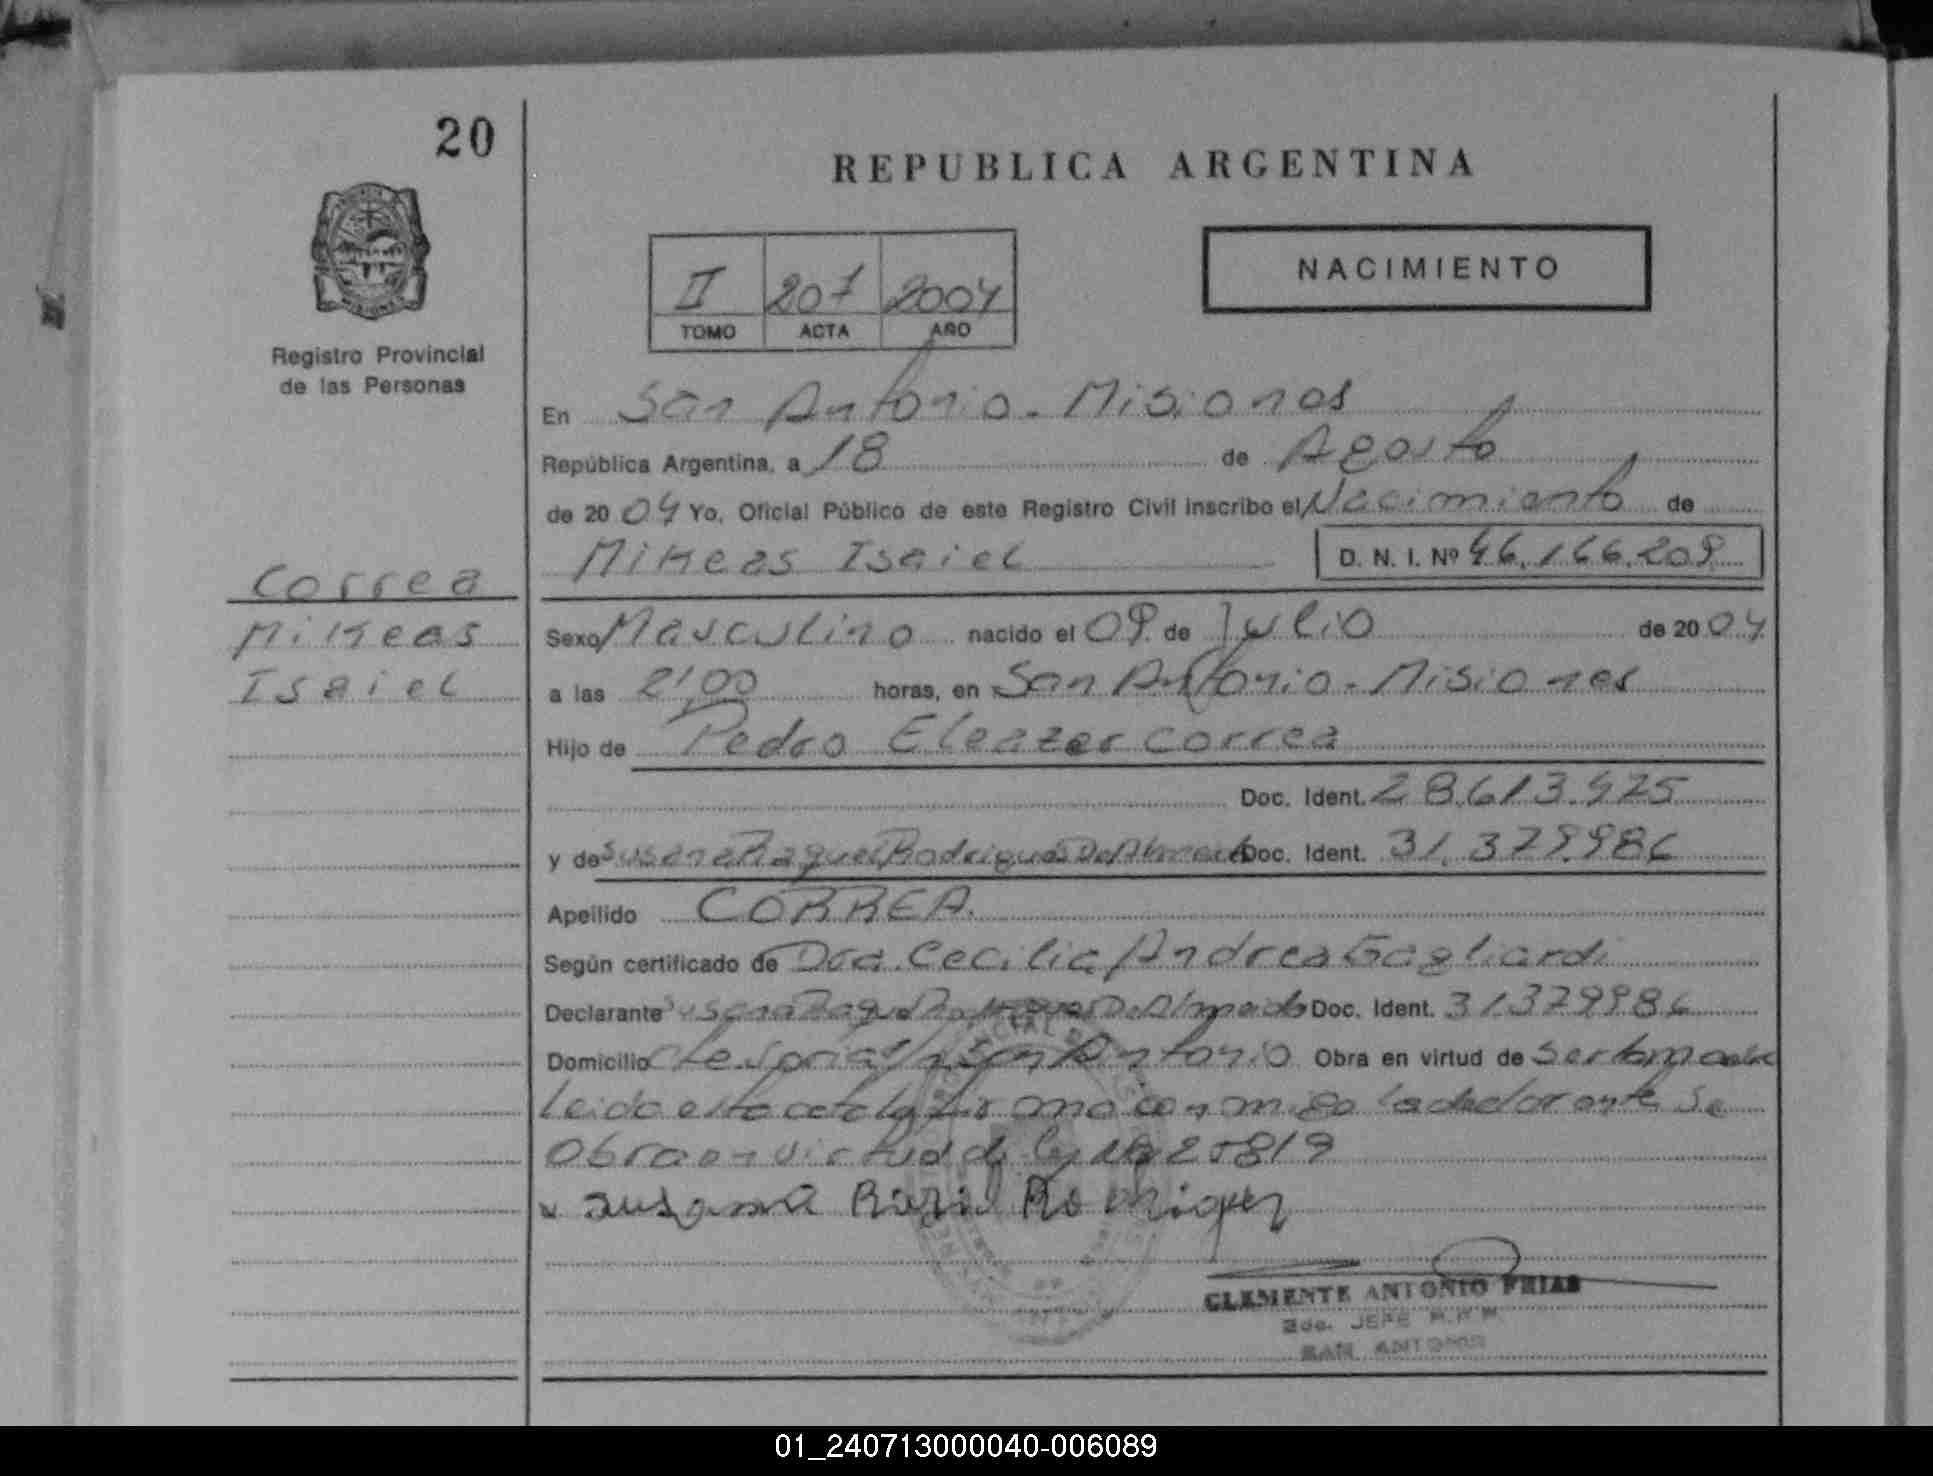 20
REPUBLICA ARGENTINA
NACIMIENTO
II 201 2004
TOMO ACTA AÑO
Registro Provincial
de las Personas
En San Antonio - Misiones
República Argentina, a 18 de Agosto
de 2004 Yo, Oficial Público de este Registro Civil inscribo el Nacimiento de
Mikeas Isaiel D. N. I. Nº 46.166.209
Correa
Mikeas
Isaiel
Sexo Masculino nacido el 09 de Julio de 2004
a las 21,00 horas, en San Antonio - Misiones
Hijo de Pedro Eleazer Correa
Doc. Ident. 28.613.425
y de Susana Raquel Rodrigues De Almeida Doc. Ident. 31.379.986
Apellido CORREA.
Según certificado de Dra. Cecilia Andrea Gagliardi
Declarante Susana Raquel Rodrigues De Almeida Doc. Ident. 31379986
Domicilio San Antonio Obra en virtud de ser la madre
Leida el acta la firma conmigo la declarante Se
Obra en virtud de ley Nº 25819
x susana Raquel Rodriguez
CLEMENTE ANTONIO FRIAS
2do. JEFE R.P.P.
SAN ANTONIO
01_240713000040-006089